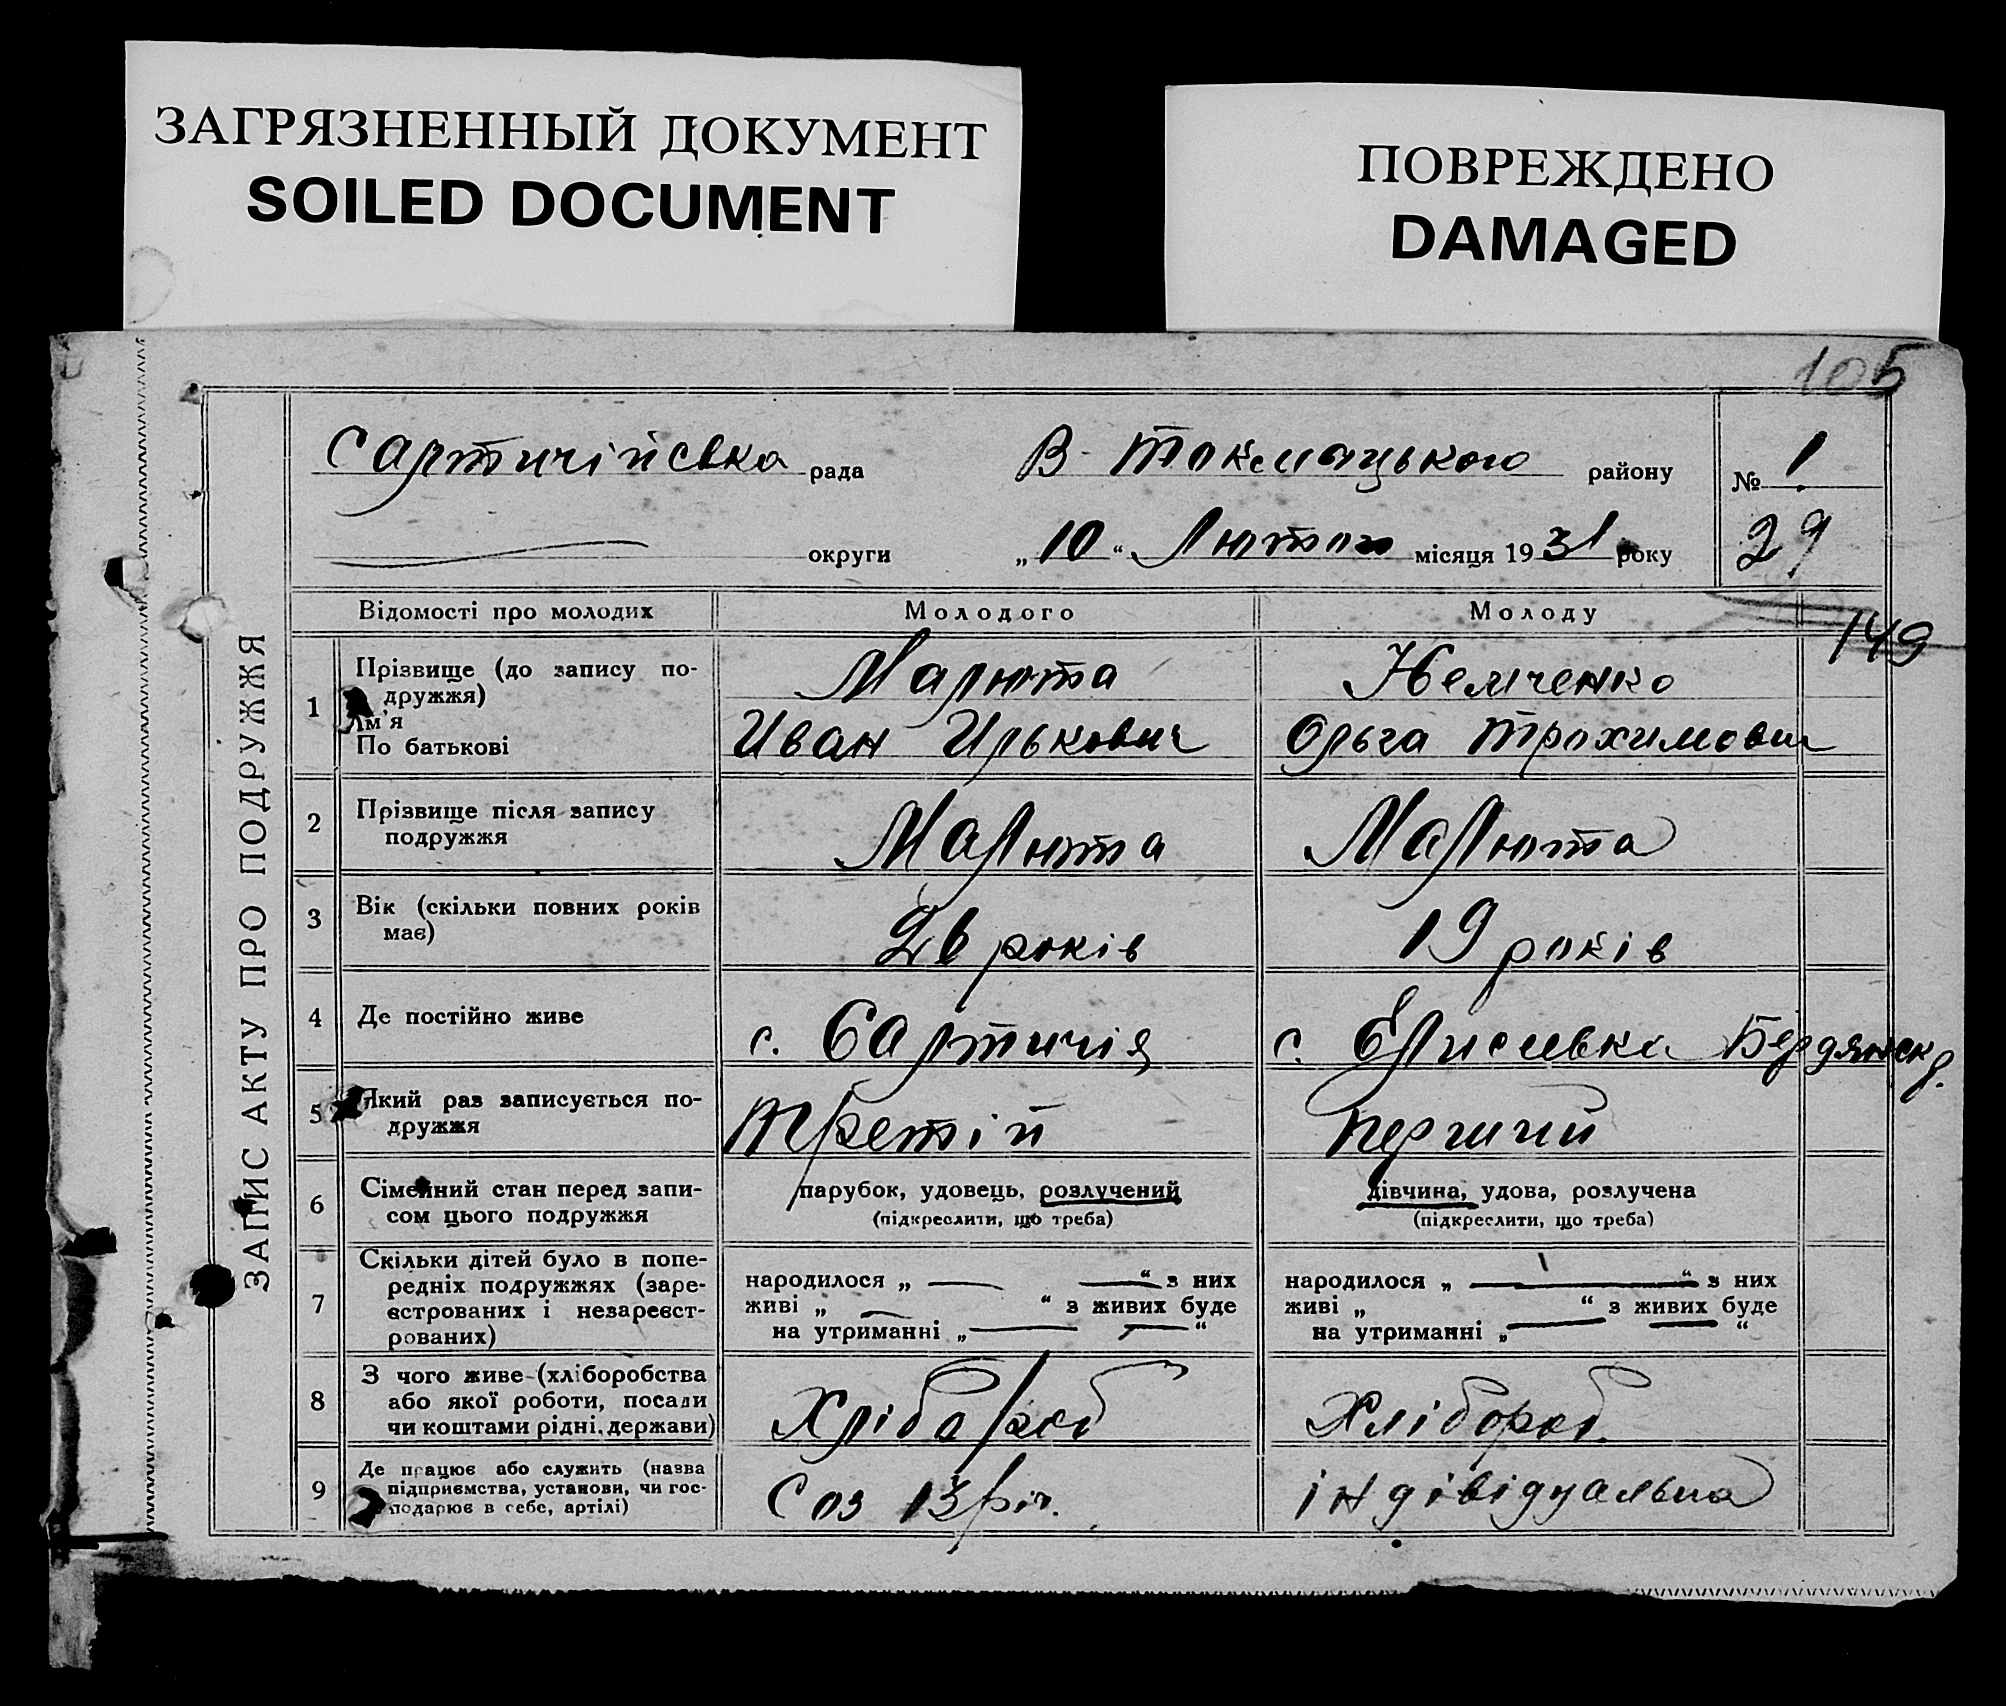 ЗАГРЯЗНЕННЫЙ ДОКУМЕНТ
SOILED DOCUMENT
ПОВРЕЖДЕНО
DAMAGED
105
ЗАПИС АКТУ ПРО ПОДРУЖЖЯ
Салтичійсвка рада В-Токмацького району № 1
округи „10“ Лютого місяця 1931 року 29
Відомості про молодих Молодого Молоду
149
1 Прізвище (до запису по-
дружжя) Малюта Немченко
Ім'я
По батькові Иван Илькович Ольга Трохимович
2 Прізвище після запису
подружжя Малюта Малюта
3 Вік (скільки повних років
має) 26 років 19 років
4 Де постійно живе с. Салтичія с. Єлисивка Бердянск р.
5 Який раз записується по-
дружжя Третій Перший
6 Сімейний стан перед запи-
сом цього подружжя
парубок, удовець, розлучений
(підкреслити, що треба)
дівчина, удова, розлучена
(підкреслити, що треба)
7 Скільки дітей було в попе-
редніх подружжях (заре-
єстрованих і незареєст-
рованих)
народилося „ — — “ з них
живі „ — “ з живих буде
на утриманні „ — — “
народилося „ — “ з них
живі „ “ з живих буде
на утриманні „ — — “
8 З чого живе (хліборобства
або якої роботи, посади
чи коштами рідні. держави) Хлібороб Хлібороб
9 Де працює або служить (назва
підприємства, установи, чи гос-
подарює в себе, артілі) Соз індівідуальна